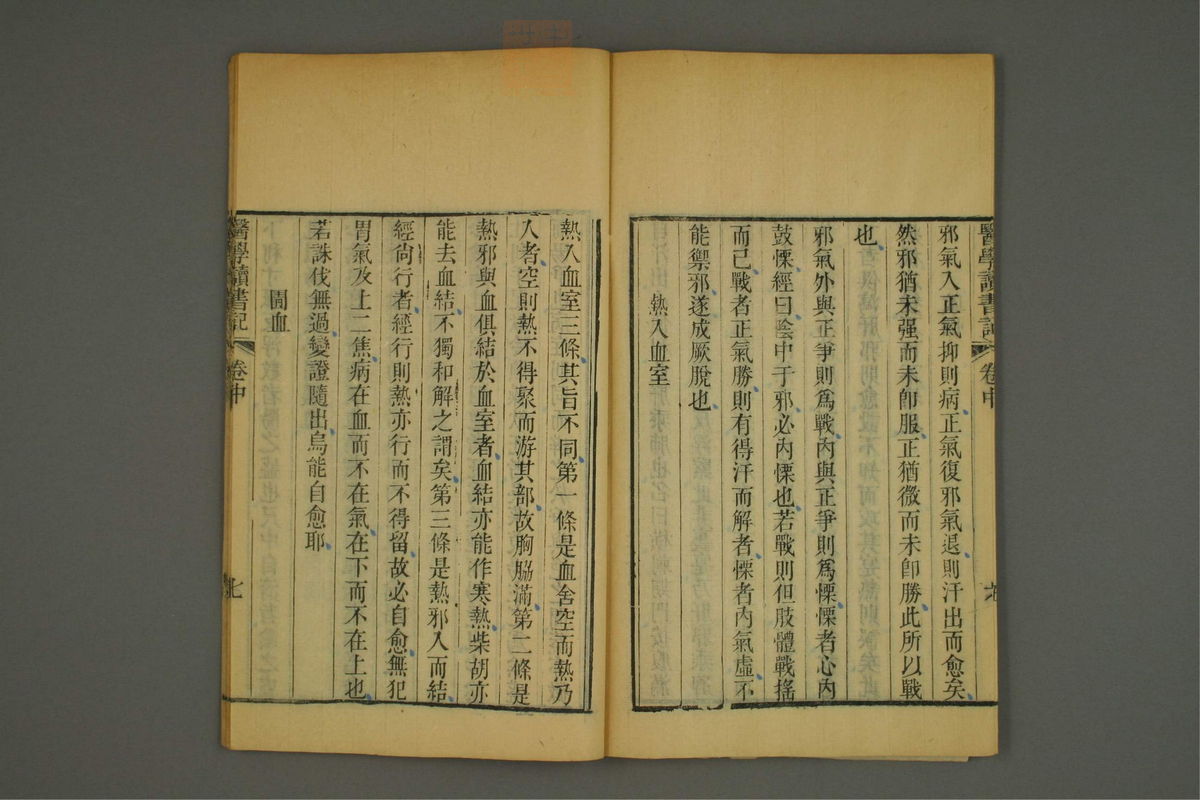 醫學讀書記 卷中
邪氣入正氣抑則病正氣復邪氣退則汗出而愈矣
然邪猶未强而未卽服正猶微而未卽勝此所以戰
也
邪氣外與正爭則爲戰內與正爭則爲慄慄者心內
鼓慄經曰陰中于邪必內慄也若戰則但肢體戰搖
而已戰者正氣勝則有得汗而解者慄者內氣虛不
能禦邪遂成厥脫也
熱入血室
熱入血室三條其旨不同第一條是血舍空而熱乃
入者空則熱不得聚而游其部故胸脇滿第二條是
熱邪與血俱結於血室者血結亦能作寒熱柴胡亦
能去血結不獨和解之謂矣第三條是熱邪入而結
經尚行者經行則熱亦行而不得留故必自愈無犯
胃氣及上二焦病在血而不在氣在下而不在上也
若誅伐無過變證隨出烏能自愈耶
圊血
醫學讀書記 卷中 七